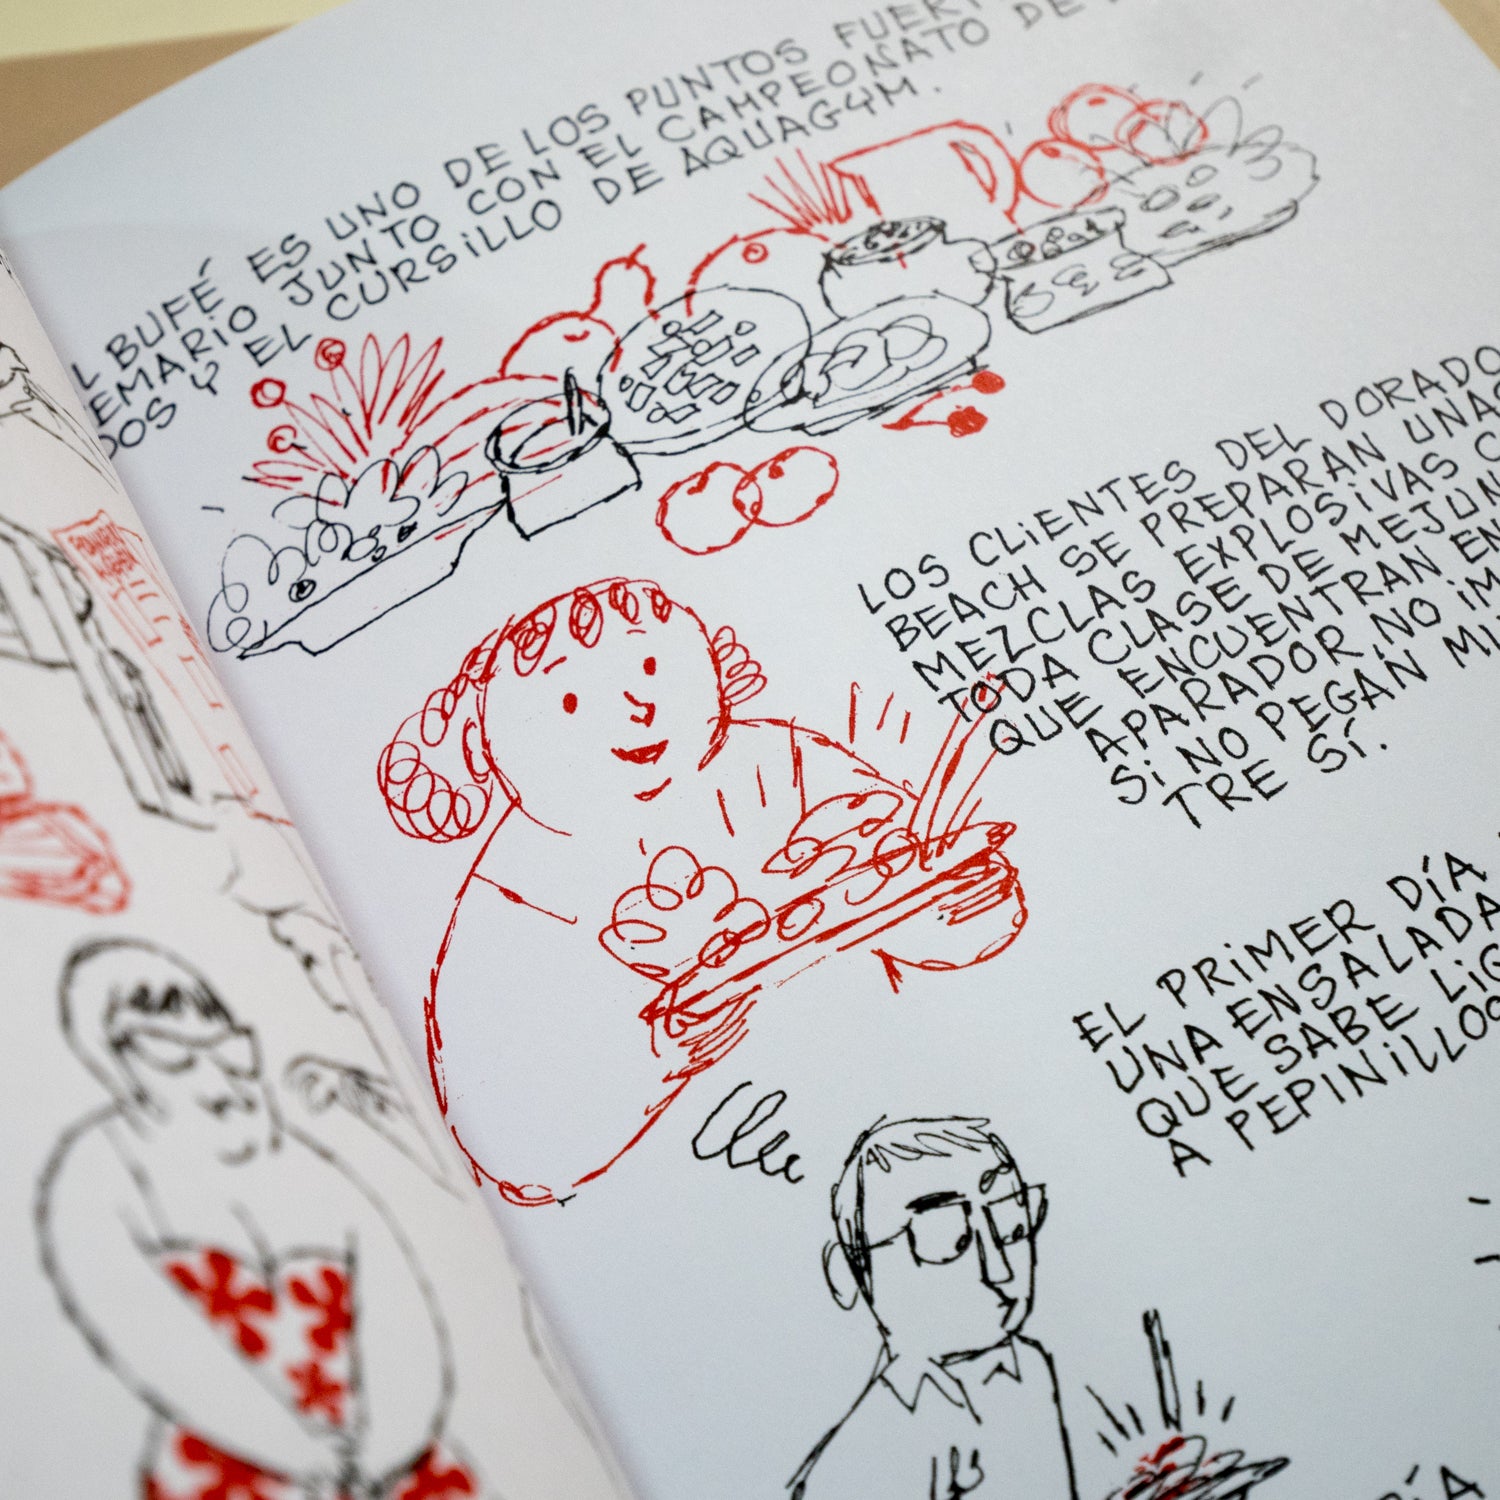 L BUFÉ ES UNO DE LOS PUNTOS FUERT
EMARIO JUNTO CON EL CAMPEONATO DE
DOS Y EL CURSILLO DE AQUAGYM.
LOS CLIENTES DEL DORADO
BEACH SE PREPARAN UNAS
MEZCLAS EXPLOSIVAS C
TODA CLASE DE MEJUN
QUE ENCUENTRAN EN
APARADOR. NO IM
SI NO PEGAN MI
TRE SÍ.
EL PRIMER DÍA
UNA ENSALADA
QUE SABE LIG
A PEPINILLOS